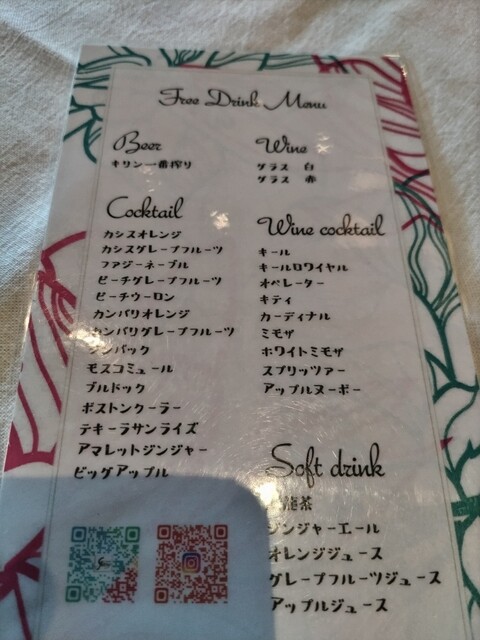 Free Drink Menu
Beer
キリン一番搾り
Cocktail
カシスオレンジ
カシスグレープフルーツ
ファジーネーブル
ピーチグレープフルーツ
ピーチウーロン
カンパリオレンジ
カンパリグレープフルーツ
ジンバック
モスコミュール
ブルドック
ボストンクーラー
テキーラサンライズ
アマレットジンジャー
ビッグアップル
Wine
グラス 白
グラス 赤
Wine cocktail
キール
キールロワイヤル
オペレーター
キティ
カーディナル
ミモザ
ホワイトミモザ
スプリッツァー
アップルヌーボー
Soft drink
龍茶
ジンジャーエール
オレンジジュース
グレープフルーツジュース
アップルジュース